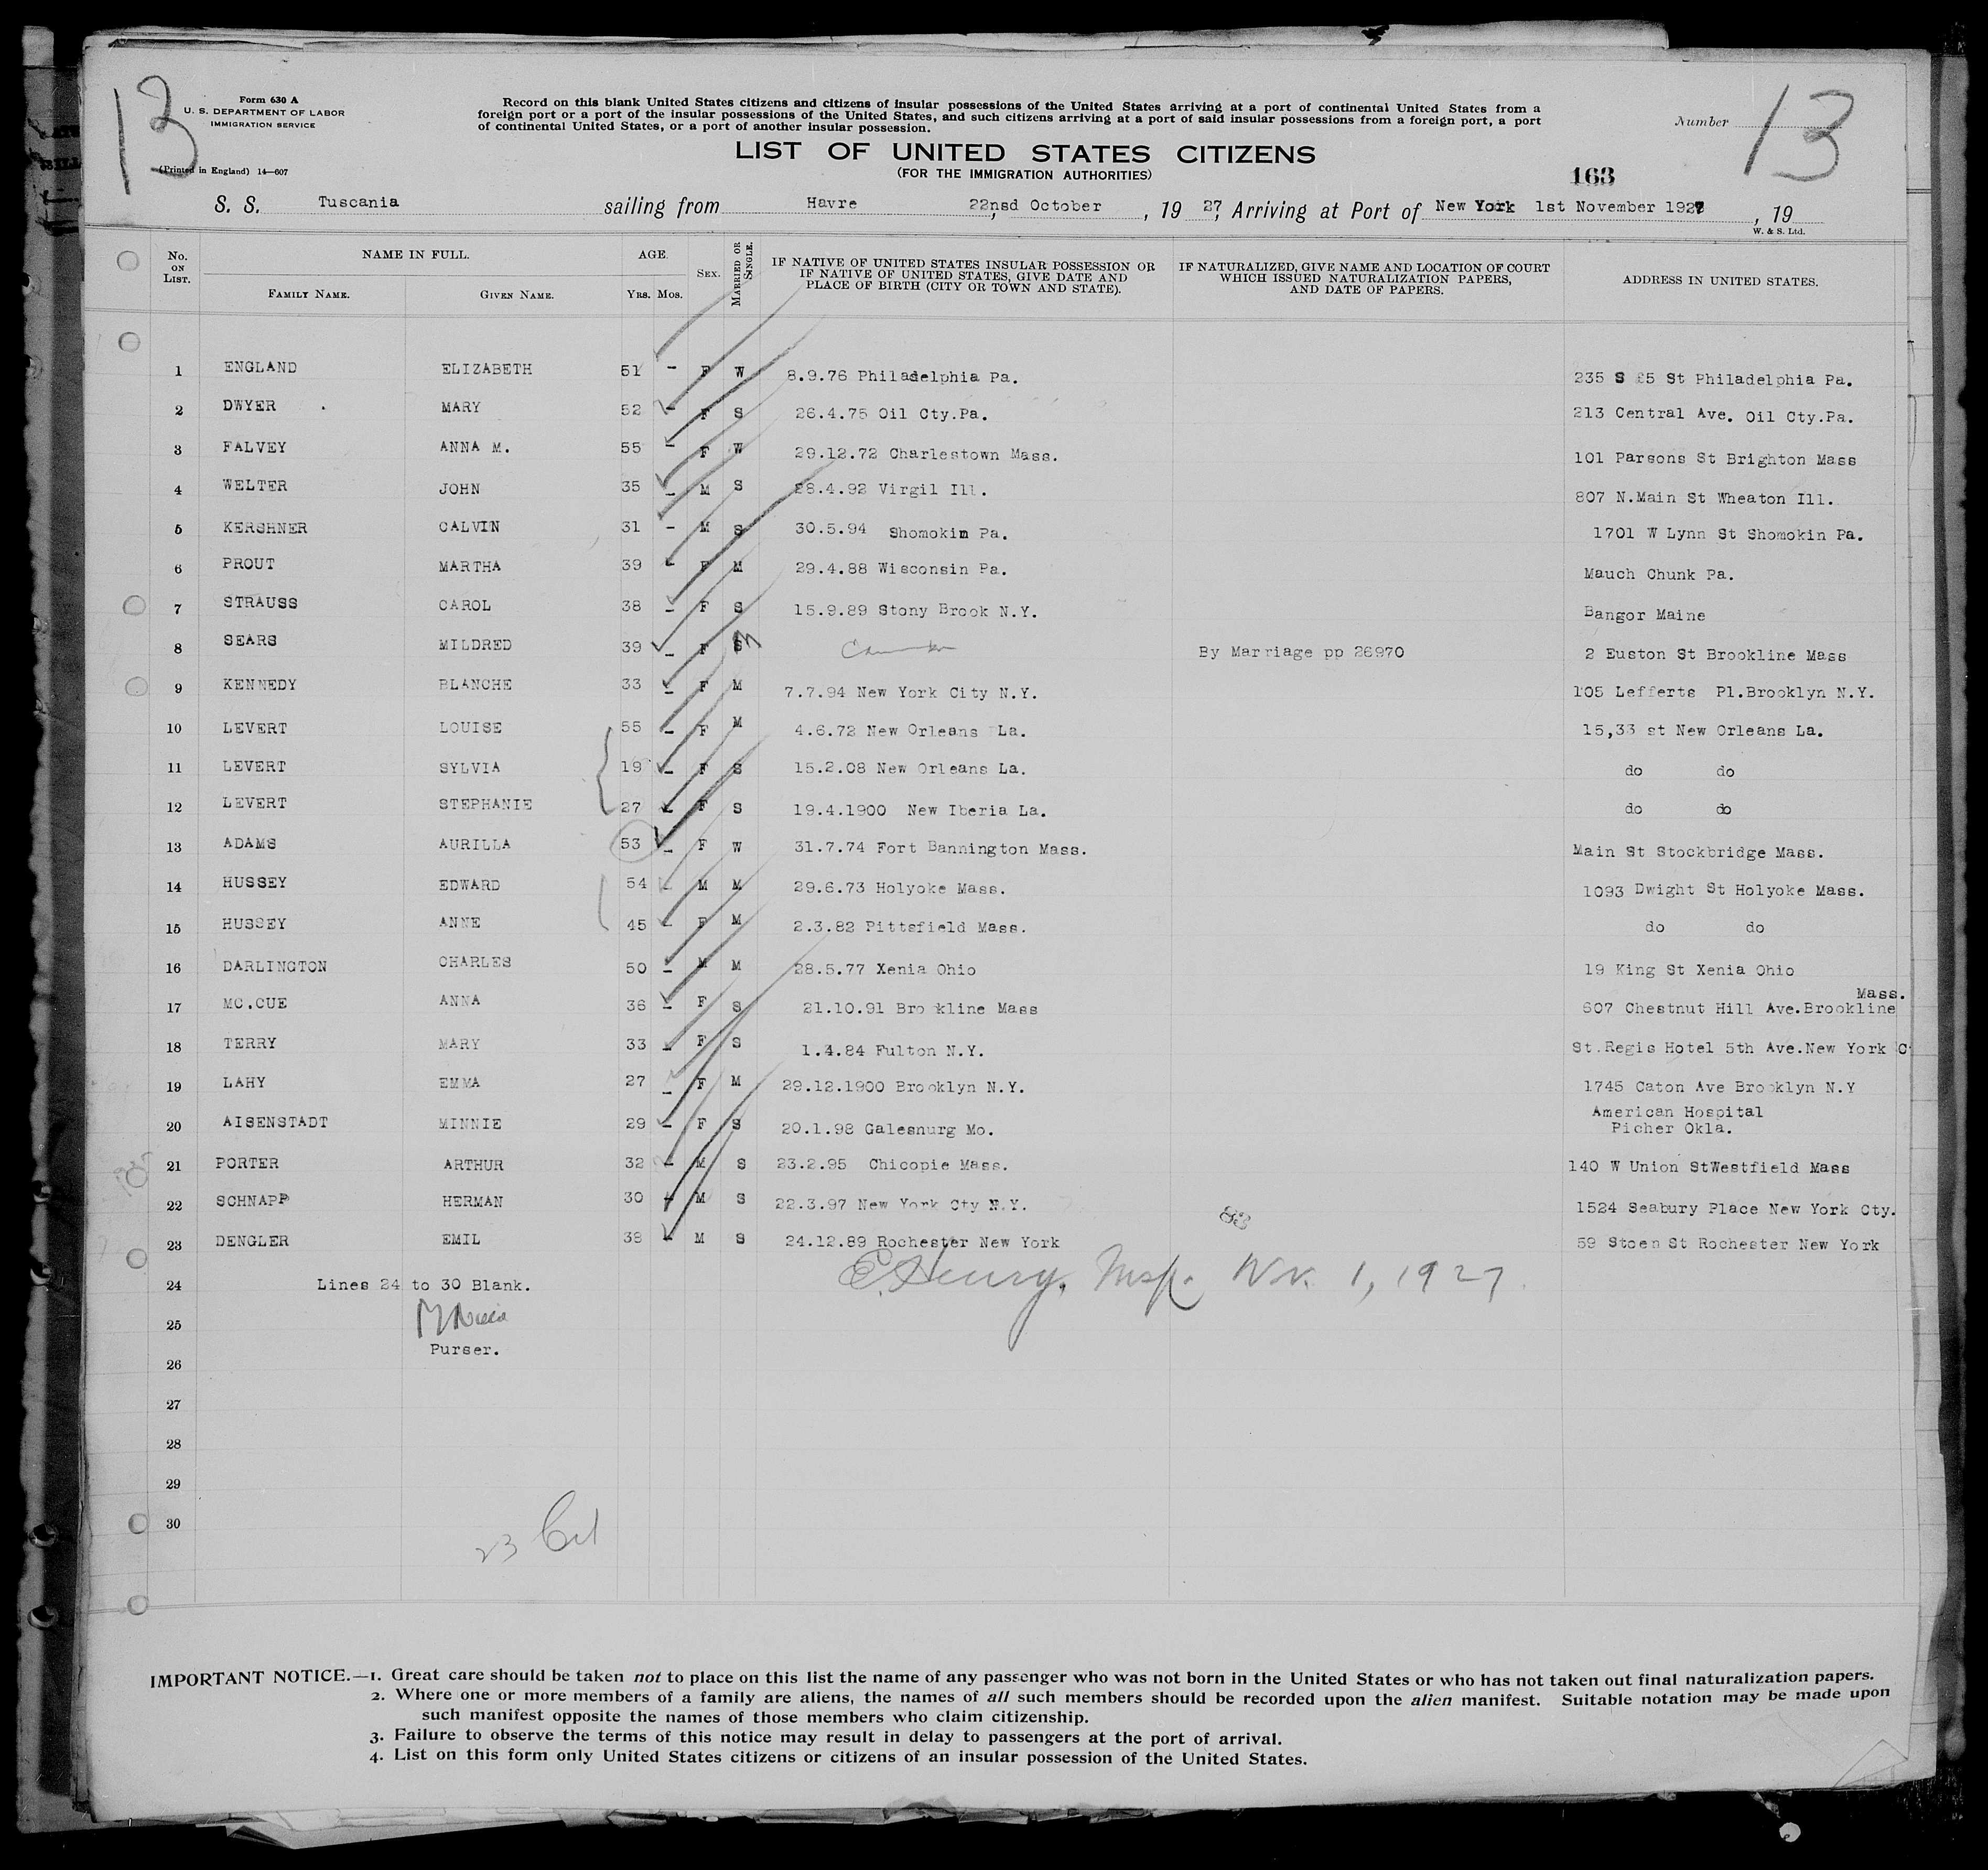 13
Form 630 A
U. S. DEPARTMENT OF LABOR
IMMIGRATION SERVICE
(Printed in England) 14—607
Record on this blank United States citizens and citizens of insular possessions of the United States arriving at a port of continental United States from a
foreign port or a port of the insular possessions of the United States, and such citizens arriving at a port of said insular possessions from a foreign port, a port
of continental United States, or a port of another insular possession.
Number 13
LIST OF UNITED STATES CITIZENS
(FOR THE IMMIGRATION AUTHORITIES)
163
S. S. Tuscania sailing from Havre 22nsd October, 19 27, Arriving at Port of New York 1st November 1927, 19
W. & S. Ltd.
No. ON LIST. NAME IN FULL. AGE. SEX. MARRIED OR SINGLE. IF NATIVE OF UNITED STATES INSULAR POSSESSION OR IF NATIVE OF UNITED STATES, GIVE DATE AND PLACE OF BIRTH (CITY OR TOWN AND STATE). IF NATURALIZED, GIVE NAME AND LOCATION OF COURT WHICH ISSUED NATURALIZATION PAPERS, AND DATE OF PAPERS. ADDRESS IN UNITED STATES.
FAMILY NAME. GIVEN NAME. YRS. MOS.
1 ENGLAND ELIZABETH 51 – F W 8.9.76 Philadelphia Pa. 235 S 25 St Philadelphia Pa.
2 DWYER . MARY 52 – F S 26.4.75 Oil Cty.Pa. 213 Central Ave. Oil Cty.Pa.
3 FALVEY ANNA M. 55 – F W 29.12.72 Charlestown Mass. 101 Parsons St Brighton Mass
4 WELTER JOHN 35 – M S 28.4.92 Virgil Ill. 807 N.Main St Wheaton Ill.
5 KERSHNER CALVIN 31 – M S 30.5.94 Shomokin Pa. 1701 W Lynn St Shomokin Pa.
6 PROUT MARTHA 39 – F M 29.4.88 Wisconsin Pa. Mauch Chunk Pa.
7 STRAUSS CAROL 38 – F S 15.9.89 Stony Brook N.Y. Bangor Maine
8 SEARS MILDRED 39 – F S M By Marriage pp 26970 2 Euston St Brookline Mass
9 KENNEDY BLANCHE 33 – F M 7.7.94 New York City N.Y. 105 Lefferts Pl.Brooklyn N.Y.
10 LEVERT LOUISE 55 F M 4.6.72 New Orleans La. 15,33 st New Orleans La.
11 LEVERT SYLVIA 19 – F S 15.2.08 New Orleans La. do do
12 LEVERT STEPHANIE 27 – F S 19.4.1900 New Iberia La. do do
13 ADAMS AURILLA 53 – F W 31.7.74 Fort Bannington Mass. Main St Stockbridge Mass.
14 HUSSEY EDWARD 54 – M M 29.6.73 Holyoke Mass. 1093 Dwight St Holyoke Mass.
15 HUSSEY ANNE 45 – F M 2.3.82 Pittsfield Mass. do do
16 DARLINGTON CHARLES 50 – M M 28.5.77 Xenia Ohio 19 King St Xenia Ohio
17 MC.CUE ANNA 36 – F S 21.10.91 Brookline Mass 607 Chestnut Hill Ave.Brookline Mass.
18 TERRY MARY 33 – F S 1.4.84 Fulton N.Y. St.Regis Hotel 5th Ave.New York C
19 LAHY EMMA 27 – F M 29.12.1900 Brooklyn N.Y. 1745 Caton Ave Brooklyn N.Y
20 AISENSTADT MINNIE 29 – F S 20.1.98 Galesnurg Mo. American Hospital Picher Okla.
21 PORTER ARTHUR 32 – M S 23.2.95 Chicopie Mass. 140 W Union StWestfield Mass
22 SCHNAPP HERMAN 30 – M S 22.3.97 New York Cty N.Y. 1524 Seabury Place New York Cty.
23 DENGLER EMIL 38 – M S 24.12.89 Rochester New York 59 Stoen St Rochester New York
83
24 Lines 24 to 30 Blank.
E. Henry, Insp. Nov. 1, 1927.
25
Purser.
26
27
28
29
30
23 Cit
IMPORTANT NOTICE.—1. Great care should be taken not to place on this list the name of any passenger who was not born in the United States or who has not taken out final naturalization papers.
2. Where one or more members of a family are aliens, the names of all such members should be recorded upon the alien manifest. Suitable notation may be made upon
such manifest opposite the names of those members who claim citizenship.
3. Failure to observe the terms of this notice may result in delay to passengers at the port of arrival.
4. List on this form only United States citizens or citizens of an insular possession of the United States.